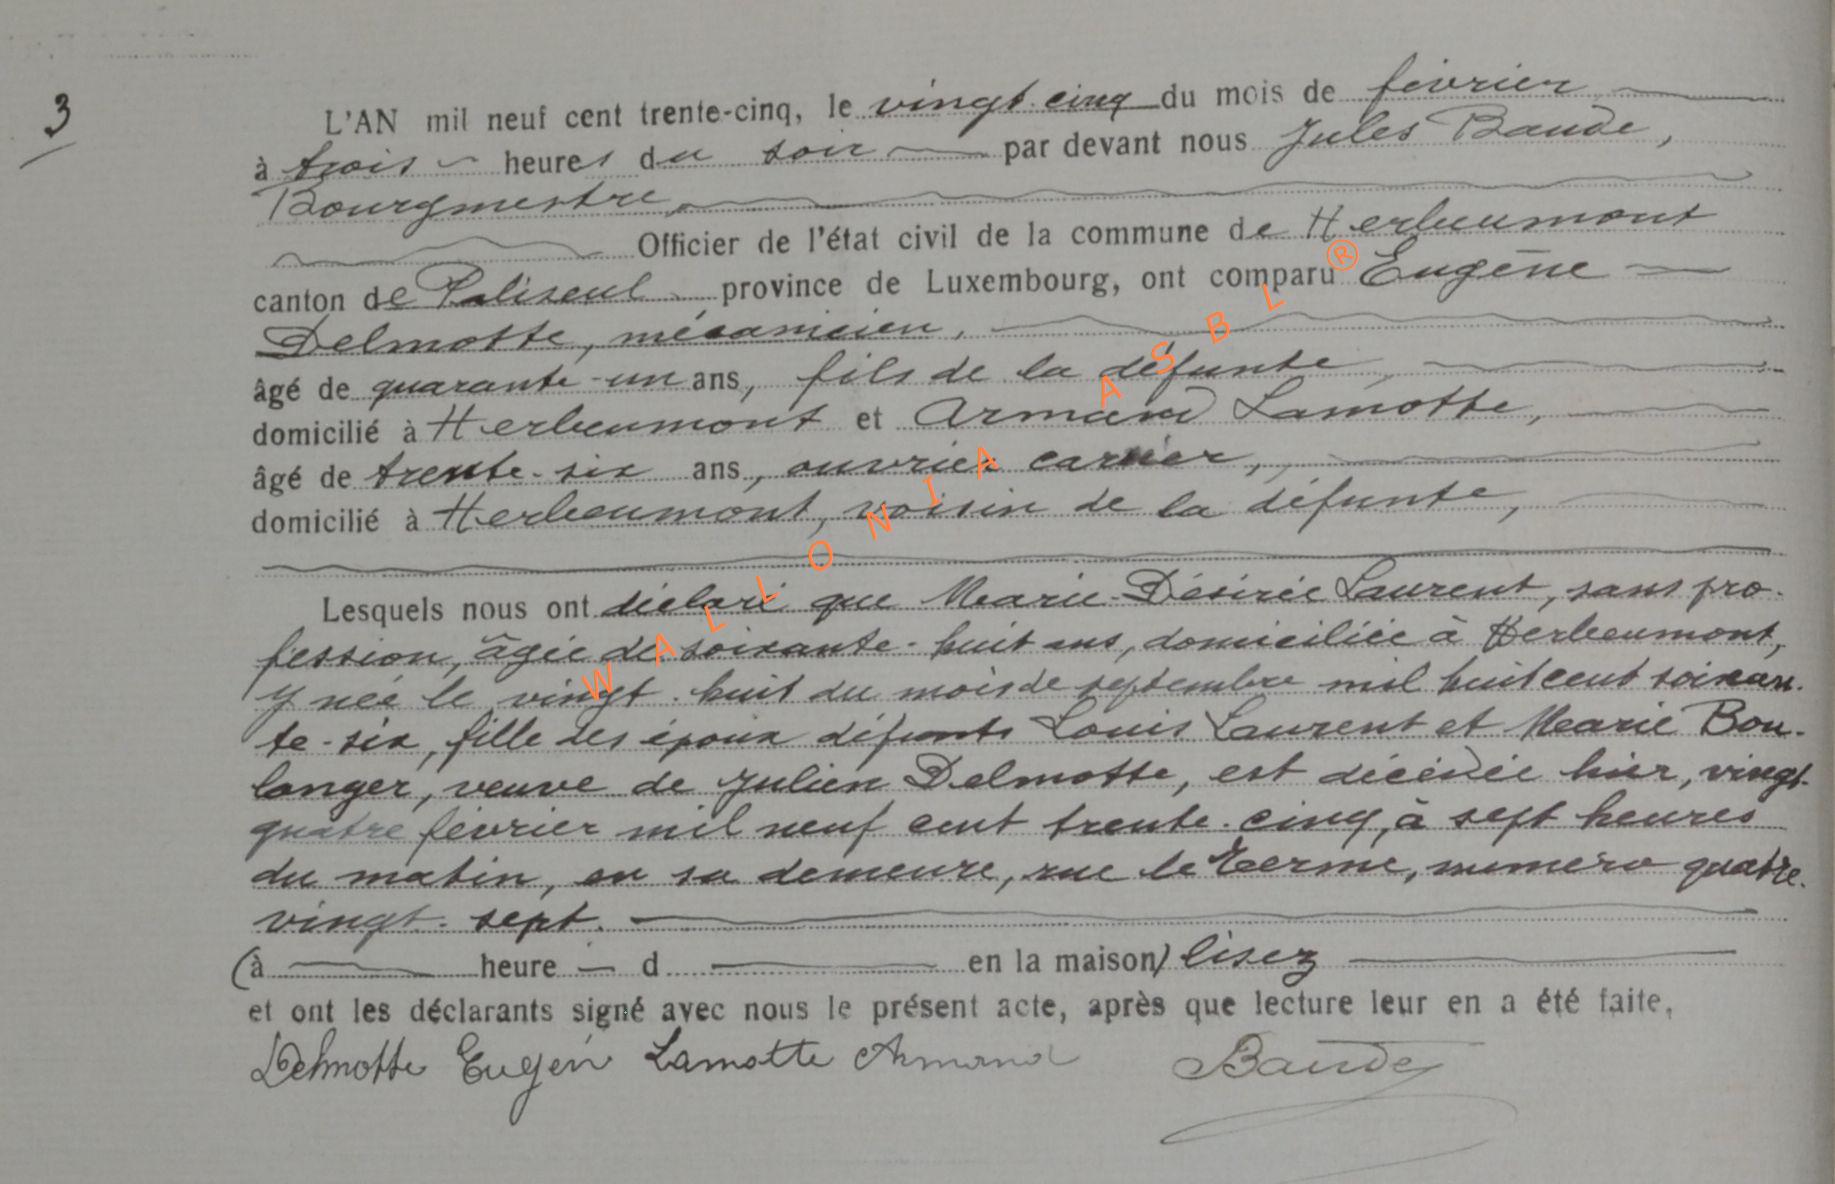 3
L'AN mil neuf cent trente-cinq, le vingt-cinq du mois de février
à trois heures du soir par devant nous Jules Baude,
Bourgmestre,
Officier de l'état civil de la commune de Herbeumont
canton de Paliseul province de Luxembourg, ont comparu Eugène
Delmotte, mécanicien,
âgé de quarante-un ans, fils de la défunte,
domicilié à Herbeumont et Armand Lamotte,
âgé de trente-six ans, ouvrier carrier,
domicilié à Herbeumont, voisin de la défunte,
Lesquels nous ont déclaré que Marie-Désirée Laurent, sans pro-
fession, âgée de soixante-huit ans, domiciliée à Herbeumont,
y née le vingt-huit du mois de septembre mil huit cent soixan-
te-six, fille des époux défunts Louis Laurent et Marie Bou-
langer, veuve de Julien Delmotte, est décédée hier, vingt-
quatre février mil neuf cent trente-cinq, à sept heures
du matin, en sa demeure, rue le Terme, numéro quatre-
vingt-sept.
(à heure d en la maison) lisez
et ont les déclarants signé avec nous le présent acte, après que lecture leur en a été faite.
Delmotte Eugén Lamotte Armand Baude
WALLONIA ASBL ®